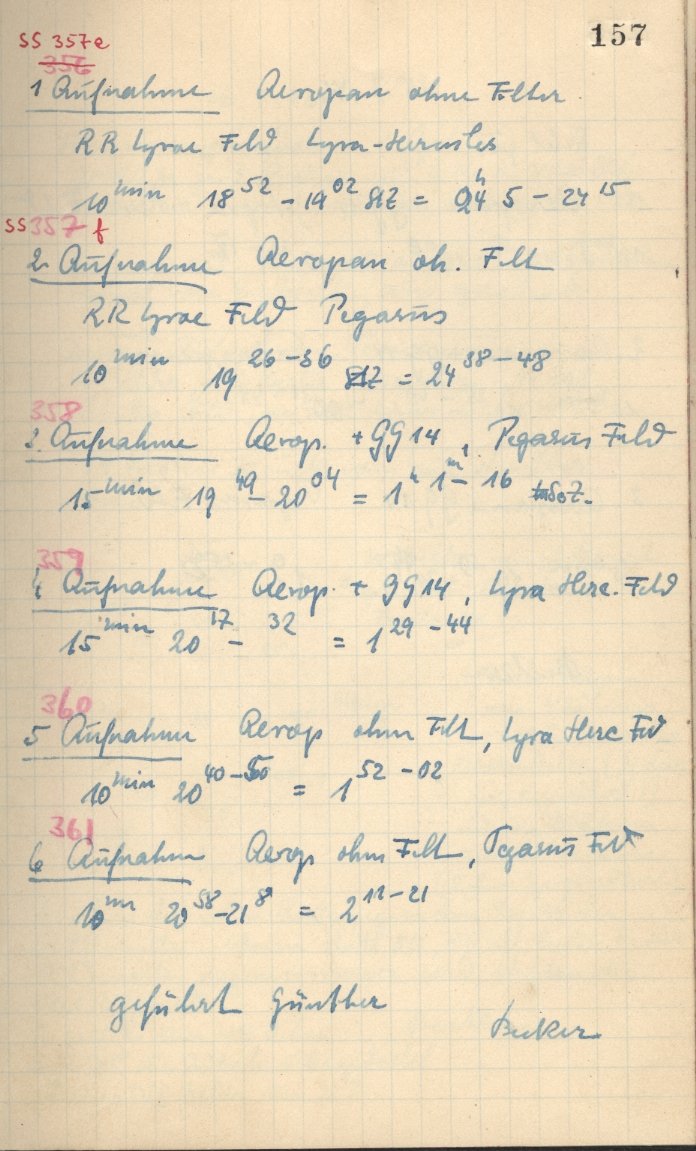 157
SS 357e
356
1 Aufnahme Aeropan ohne Filter
RR Lyrae Feld Lyra-Hercules
10 min 18 52 - 19 02 StZ = 24 h 5 - 24 15
SS 357 f
2. Aufnahme Aeropan oh. Filt
RR Lyrae Feld Pegasus
10 min 19 26-36 StZ = 24 38-48
358
3. Aufnahme Aerop. + GG14, Pegasus Feld
15 min 19 49 - 20 04 = 1 h 1 m - 16
359
4 Aufnahme Aerop. + GG14, Lyra Herc. Feld
15 min 20 17 - 32 = 1 29 - 44
360
5 Aufnahm Aerop ohn Filt, Lyra Herc Fld
10 min 20 40-50 = 1 52 - 02
361
6 Aufnahm Aerop ohn Filt, Pegasus Feld
10 min 20 58 - 21 8 = 2 11-21
geführt Günther
Becker